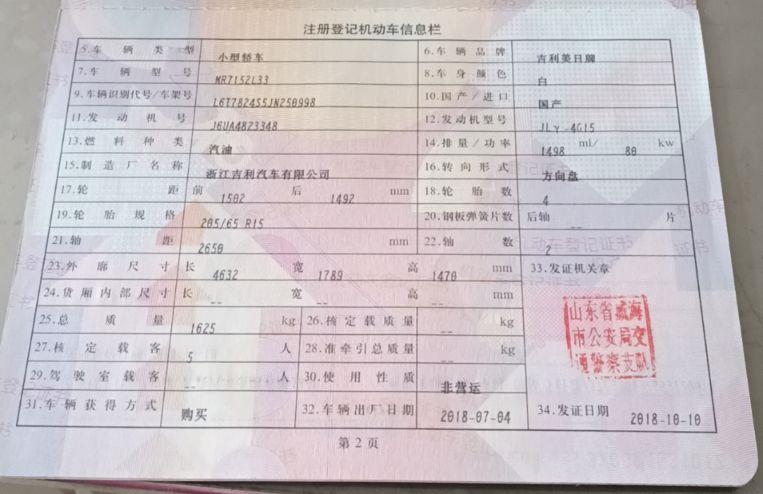 注册登记机动车信息栏
5.车辆类型 小型轿车 6.车辆品牌 吉利美日牌
7.车辆型号 MR7152L33 8.车身颜色 白
9.车辆识别代号/车架号 L6T7824S5JN250998 10.国产/进口 国产
11.发动机号 J6UA4823348 12.发动机型号 JLγ-4G15
13.燃料种类 汽油 14.排量/功率 1498 ml/ 80 kw
15.制造厂名称 浙江吉利汽车有限公司 16.转向形式 方向盘
17.轮距 前 1502 后 1492 mm 18.轮胎数 4
19.轮胎规格 205/65 R15 20.钢板弹簧片数 后轴 -- 片
21.轴距 2650 mm 22.轴数 2
23.外廓尺寸 长 4632 宽 1789 高 1470 mm 33.发证机关章
24.货厢内部尺寸 长 -- 宽 -- 高 -- mm
山东省威海
市公安局交
通警察支队
25.总质量 1625 kg 26.核定载质量 -- kg
27.核定载客 5 人 28.准牵引总质量 -- kg
29.驾驶室载客 -- 人 30.使用性质 非营运
31.车辆获得方式 购买 32.车辆出厂日期 2018-07-04 34.发证日期 2018-10-10
第2页